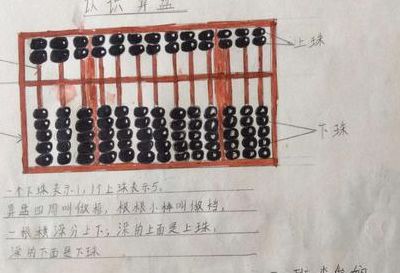 认识算盘
上珠
下珠
一个下珠表示1,1个上珠表示5。
算盘四周叫做框,根根小棒叫做档,
一根横梁分上下;梁的上面是上珠,
梁的下面是下珠